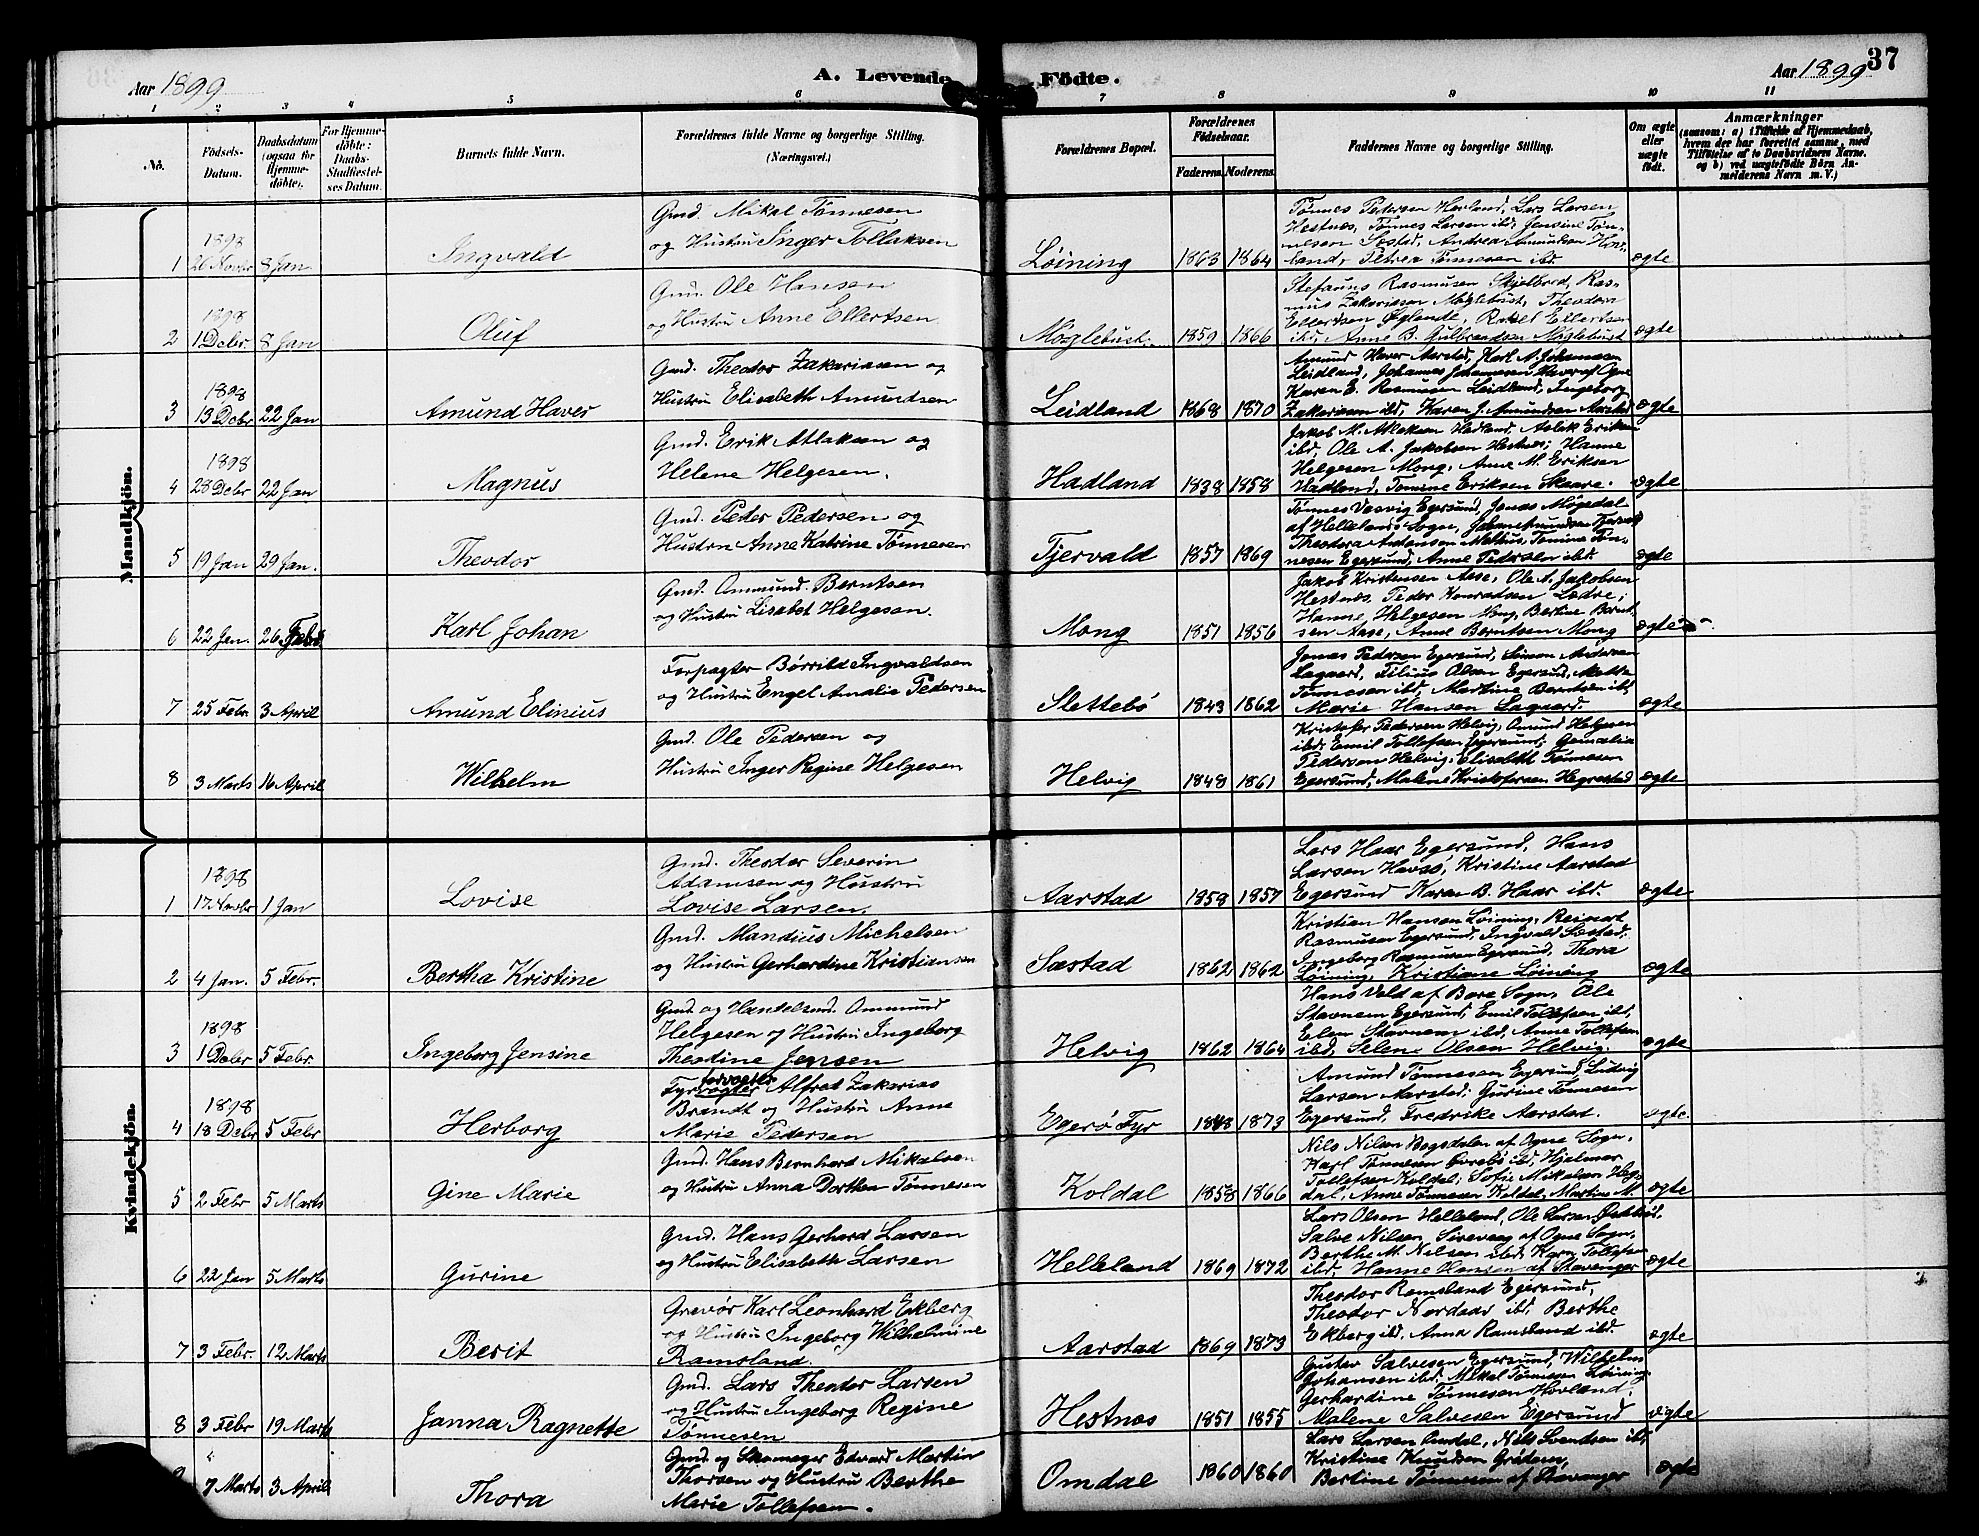 Aar 1899
A. Levende Födte.
Aar 1899
37
1 2 3 4 5 6 7 8 9 10 11
No.
Födsels-Datum.
Daabsdatum (ogsaa for Hjemmedöbte).
For Hjemmedöbte: Daabs-Stadfæstelses Datum.
Barnets fulde Navn.
Forældrenes fulde Navne og borgerlige Stilling. (Næringsvei.)
Forældrenes Bopæl.
Forældrenes Födselsaar.
Faderens. Moderens.
Faddernes Navne og borgerlige Stilling.
Om ægte eller uægte födt.
Anmærkninger
(saasom: a) i Tilfælde af Hjemmedaab, hvem der har forrettet samme, med Tilföielse af to Daabsvidners Navne. og b) ved uægtefödte Börn Anmelderens Navn m. V.)
Mandkjön.
Gmd. Mikal Tønnesen
og Hustru Inger Tollaksen
1 1898 26 Novbr 8 Jan Ingvald Løining 1863 1864 ægte
Tønnes Pedersen Havland, Lars Larsen
Hestnes, Tønnes Larsen ibd, Jensine Tøn-
nesen Sæstad, Andrea Amundsen Hav-
land, Petrea Tønnesen ibd.
Gmd. Ole Hansen
og Hustru Anne Ellertsen
2 1898 1 Debr. 8 Jan Oluf Møglebust. 1859 1866 ægte
Stefanus Rasmusen Skjelbred, Ras-
mus Zakariasen Møglebust, Theodor
Ellertsen Øglend, Rakel Ellertsen
ibd, Anne B. Gulbrandsen Møglebust
Gmd. Theodor Zakariasen og
Hustru Elisabeth Amundsen
3 1898 13 Debr 22 Jan Amund Haver Leidland 1868 1870 ægte
Amund Haver Aarstad, Karl A. Johannesen
Leidland, Johannes Johannesen Haver af Ogne
Karen E. Rasmusen Leidland, Ingeborg
Zakariasen ibd, Karen J. Amundsen Aarstad
Gmd. Erik Atlaksen og
Helene Helgesen.
4 1898 28 Debr 22 Jan Magnus Hadland 1838 1858 ægte
Jakob M. Atlaksen Hadland, Aslek Eriksen
ibd, Ole A. Jakobsen Hestnes; Hanne
Helgesen Mong, Anne M. Eriksen
Hadland, Tomine Eriksen Skaare.
Gmd. Peder Pedersen og
Hustru Anne Katrine Tønnesen
5 19 Jan 29 Jan. Theodor Tjervald 1857 1869 ægte
Tønnes Vasvig Egersund, Jonas Møgedal
af Hellelands Sogn, Johan Amundsen Tjervald
Theodora Antonsen Mathus, Tomine Tøn-
nesen Egersund, Anne Pedersen ibd.
Gmd. Ommund Berntsen
og Hustru Lisabet Helgesen.
6 22 Jan. 26 Febr Karl Johan Mong 1851 1856 ægte
Jakob Kristensen Aase, Ole A. Jakobsen
Hestnes, Peder Konradsen Lædre;
Hanne Helgesen Mong, Bertine Bernt-
sen Aase, Anne Berntsen Mong
Forpagter Børrild Ingvaldsen
og Hustru Engel Amalia Pedersen
7 25 Febr. 3 April Amund Elinius Slettebø 1843 1862 ægte
Jonas Pedersen Egersund, Simon Andersen
Lagaard, Filius Olsen Egersund, Mette
Tønnesen ibd, Martine Berntsen ibd,
Marie Hansen Lagaard.
Gmd. Ole Pedersen og
Hustru Inger Regine Helgesen
8 3 Marts 16 April Wilhelm Helvig 1848 1861 ægte
Kristofer Pedersen Helvig, Omund Helgesen
ibd, Emil Tollefsen Egersund;
Pedersen Helvig, Elisabeth Tønnesen
Egersund, Malene Kristofersen Hegrestad
Kvindekjön.
Gmd. Theodor Severin
Adamsen og Hustru
Lovise Larsen.
1 1898 17 Novbr 1 Jan Lovise Aarstad 1858 1857 ægte
Lars Haar Egersund, Hans
Larsen Havsø, Kristine Aarstad
Egersund Karen B. Haar ibd.
Gmd. Mandius Michelsen
og Hustru Gerhardine Kristiansen
2 4 Jan. 5 Febr. Bertha Kristine Sæstad 1862 1862 ægte
Kristian Hansen Løining, Reinert
Rasmusen Egersund, Ingvald Sæstad,
Ingeborg Rasmusen Egersund, Thora
Løining, Kristiane Løining
Gmd. og Handelsmd. Ommund
Helgesen og Hustru Ingeborg
Theodine Jensen
3 1898 1 Debr. 5 Febr. Ingeborg Jensine Helvig 1862 1864 ægte
Hans Vold af Bore Sogn, Ole
Stavnem Egersund, Emil Tollefsen ibd,
Elen Stavnem ibd, Anne Tollefsen
ibd, Selene Olsen Helvig.
Fyrvogter forvalter Alfred Zakarias
Brandt og Hustru Anne
Marie Pedersen
4 1898 18 Debr 5 Febr Herborg Egerø Fyr 1848 1873 ægte.
Amund Tønnesen Egersund, Ludvig
Larsen Aarstad; Gurine Tønnesen
Egersund, Fredrike Aarstad.
Gmd. Hans Bernhard Mikalsen
og Hustru Anna Dorthea Tønnesen
5 2 Febr 5 Marts Gine Marie Koldal 1858 1866 ægte
Nils Nilsen Bogsdalen af Ogne Sogn,
Karl Tønnesen Øvrebø ibd, Hjalmar
Tollefsen Koldal; Sofie Mikalsen Hæg-
dal, Anne Tønnesen Koldal, Martine M.
Gmd. Hans Gerhard Larsen
og Hustru Elisabeth Larsen
6 22 Jan 5 Marts Gurine Helleland 1869 1872 ægte
Lars Olsen Helleland, Ole Larsen
Salve Nilsen, Sirevaag af Ogne Sogn,
Berthe M. Nilsen ibd, Karn Tollefsen
ibd, Hanne Hansen af Stavanger
Gravør Karl Leonhard Ekberg
og Hustru Ingeborg Wilhelmine
Ramsland.
7 3 Febr. 12 Marts Berit Aarstad 1869 1873 ægte
Theodor Ramsland Egersund,
Theodor Nordaas ibd, Berthe
Ekberg ibd, Anna Ramsland ibd.
Gmd. Lars Theodor Larsen
og Hustru Ingeborg Regine
Tønnesen
8 3 Febr 19 Marts Janna Ragnette Hestnæs 1851 1855 ægte
Gustav Salvesen Egersund, Wilhelm
Johansen ibd, Mikal Tønnesen Løining.
Gerhardine Tønnesen Havland;
Malene Salvesen Egersund
Gmd og Skomager Edvard Martin
Thorsen og Hustru Berthe
Marie Tollefsen.
7 Marts 3 April Thora Omdal 1860 1860 ægte
Lars Larsen Omdal, Nils Svendsen ibd,
Kristine Knudsen Grødem,
Bertine Tønnesen af Stavanger